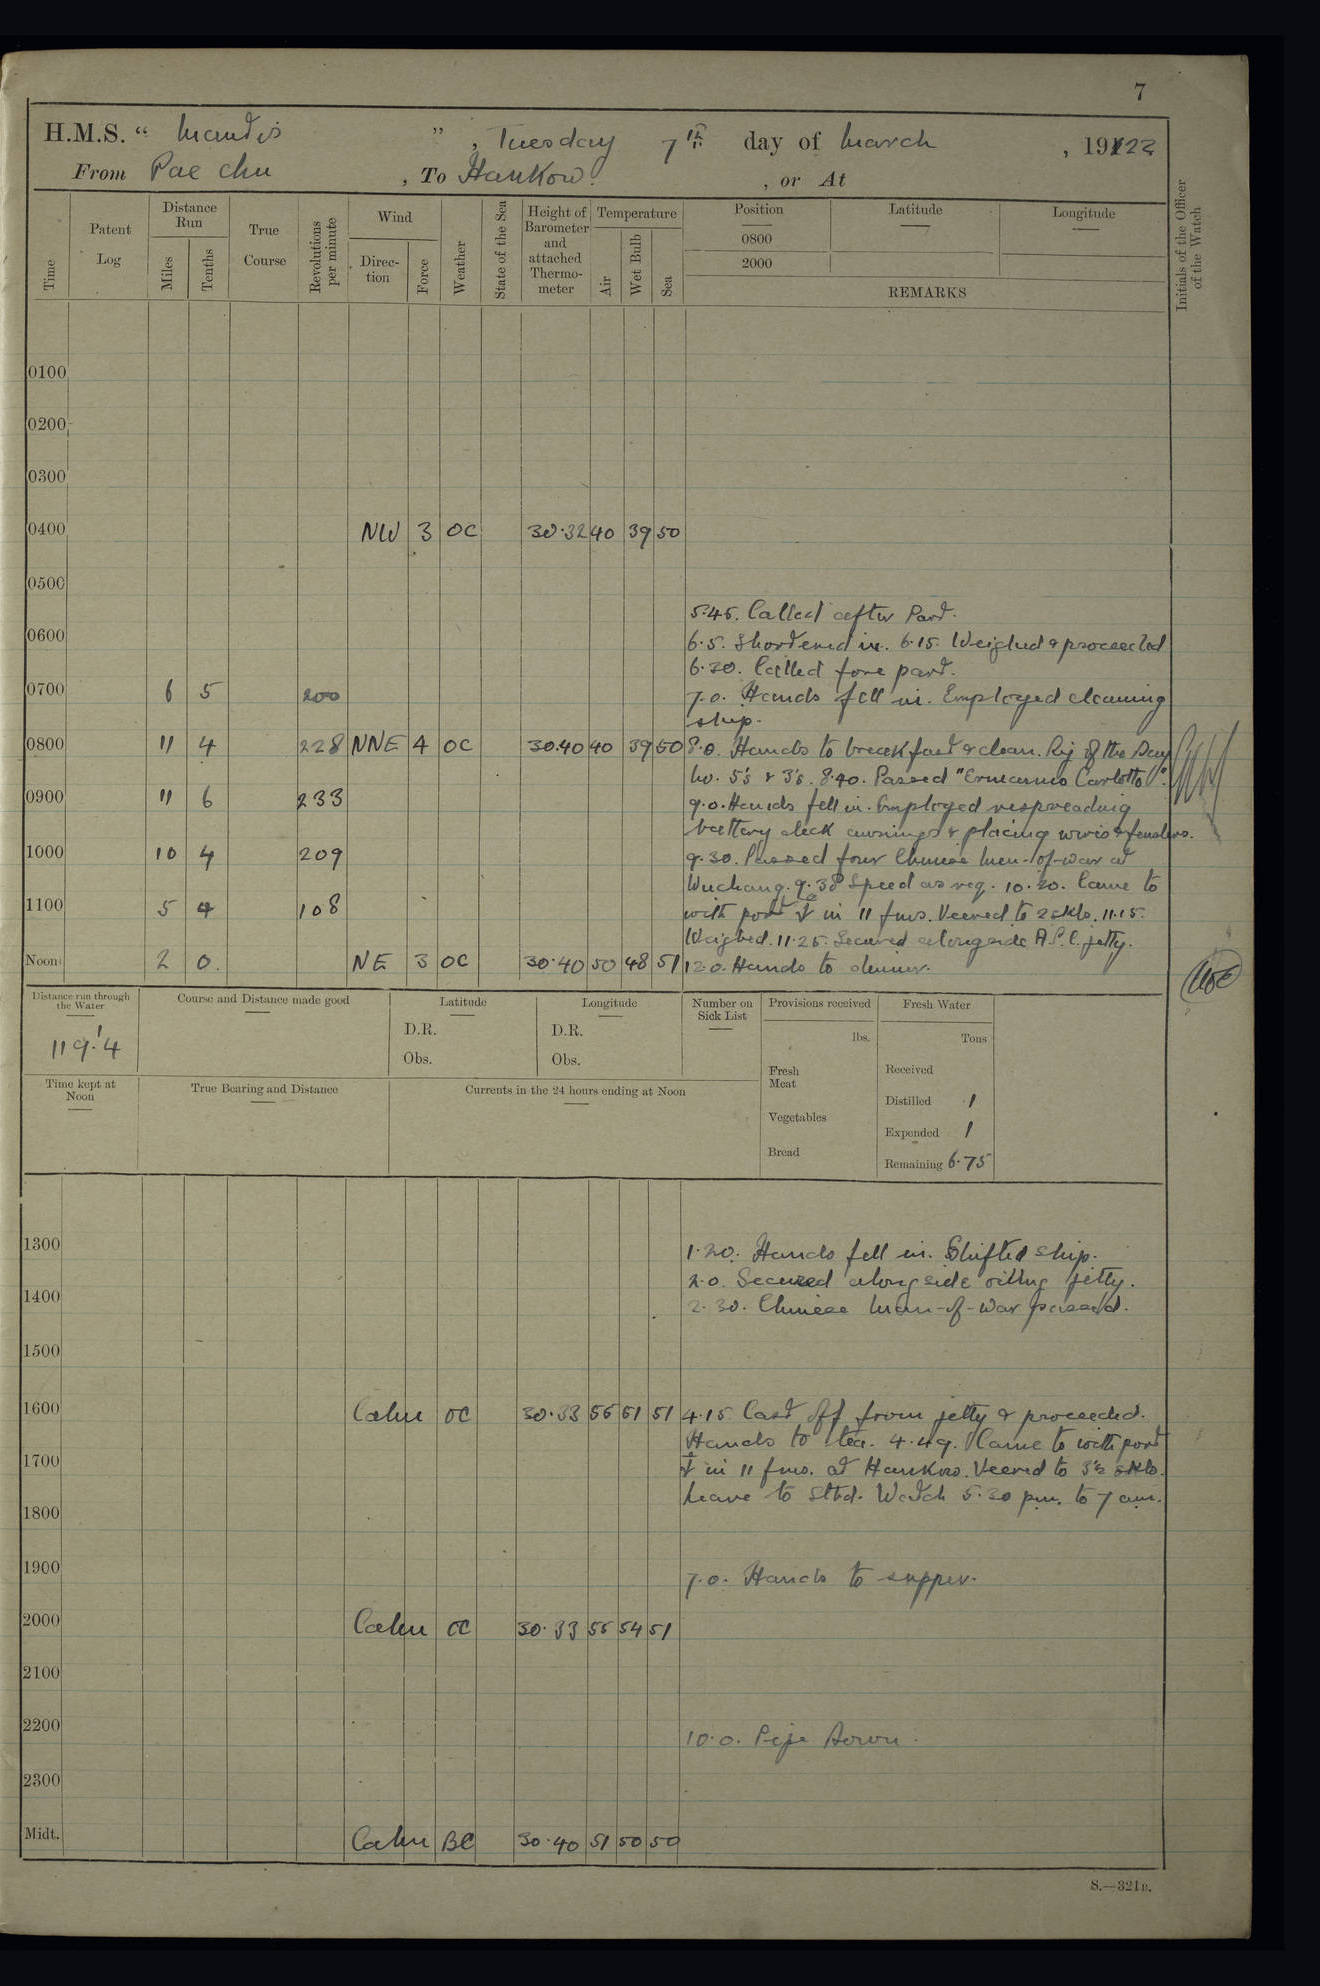 7
H.M.S. “ Mantis ”, Tuesday 7th day of March, 1922
From Pae Chu, To Hankow., or At
Time
Patent Log
Distance Run
Miles
Tenths
True Course
Revolutions per minute
Wind
Direction
Force
Weather
State of the Sea
Height of Barometer and attached Thermometer
Temperature
Air
Wet Bulb
Sea
Position
0800
2000
Latitude
Longitude
REMARKS
Initials of the Officer of the Watch
0100
0200
0300
0400 NW 3 OC 30.32 40 39 50
0500
5.45. Called after Part.
0600
6.5. Shortened in. 6.15. Weighed & proceeded
6.30. Called fore part.
0700 6 5 200 7.0. Hands fell in. Employed cleaning
ship.
0800 11 4 228 NNE 4 OC 30.40 40 39 50 8.0. Hands to breakfast & clean. Rig of the Day
No. 5's & 3's. 8.40. Passed "Ermanno Carlotto".
0900 11 6 233 9.0. Hands fell in. Employed respreading
battery deck awnings & placing wires & fenders.
1000 10 4 209 9.30. Passed four Chinese Men-of-war at
Wuchang. 9.38 Speed as req. 10.20. Came to
1100 5 4 108 with port in 11 fms. Veered to 2 shkls. 11.15.
Weighed. 11.25. Secured alongside A.P.C. jetty.
Noon 2 0. NE 3 OC 30.40 50 48 51 12.0. Hands to dinner.
Distance run through the Water
119.4
Course and Distance made good
Latitude
D.R.
Obs.
Longitude
D.R.
Obs.
Number on Sick List
Provisions received
lbs.
Fresh Meat
Vegetables
Bread
Fresh Water
Tons
Received
Distilled 1
Expended 1
Remaining 6.75
Time kept at Noon
True Bearing and Distance
Currents in the 24 hours ending at Noon
1300 1.20. Hands fell in. Shifted ship.
2.0. Secured alongside oiling jetty.
1400 2.30. Chinese Man-of-War passed.
1500
1600 Calm OC 30.33 55 51 51 4.15 Cast off from jetty & proceeded.
Hands to tea. 4.49. Came to with port
1700 in 11 fms. at Hankow. Veered to 3½ shkls.
Leave to Stbd. Watch 5.30 pm. to 7 am.
1800
1900 7.0. Hands to supper.
2000 Calm OC 30.33 55 54 51
2100
2200 10.0. Pipe Down.
2300
Midt. Calm BC 30.40 51 50 50
S.—321B.